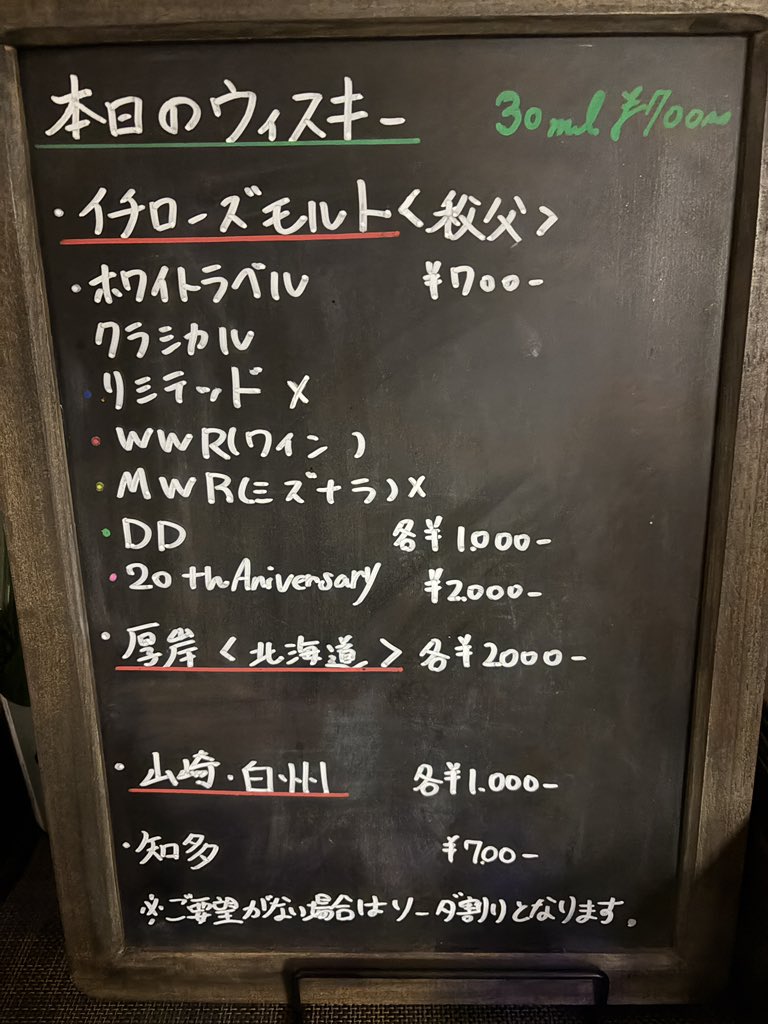 本日のウィスキー 30ml ¥700~
・イチローズモルト<秩父>
・ホワイトラベル ¥700-
クラシカル
・リミテッド ×
・WWR(ワイン)
・MWR(ミズナラ)×
・DD 各¥1,000-
・20thAniversary ¥2,000-
・厚岸<北海道> 各¥2000-
・山崎・白州 各¥1,000-
・知多 ¥700-
※ご要望がない場合はソーダ割りとなります。